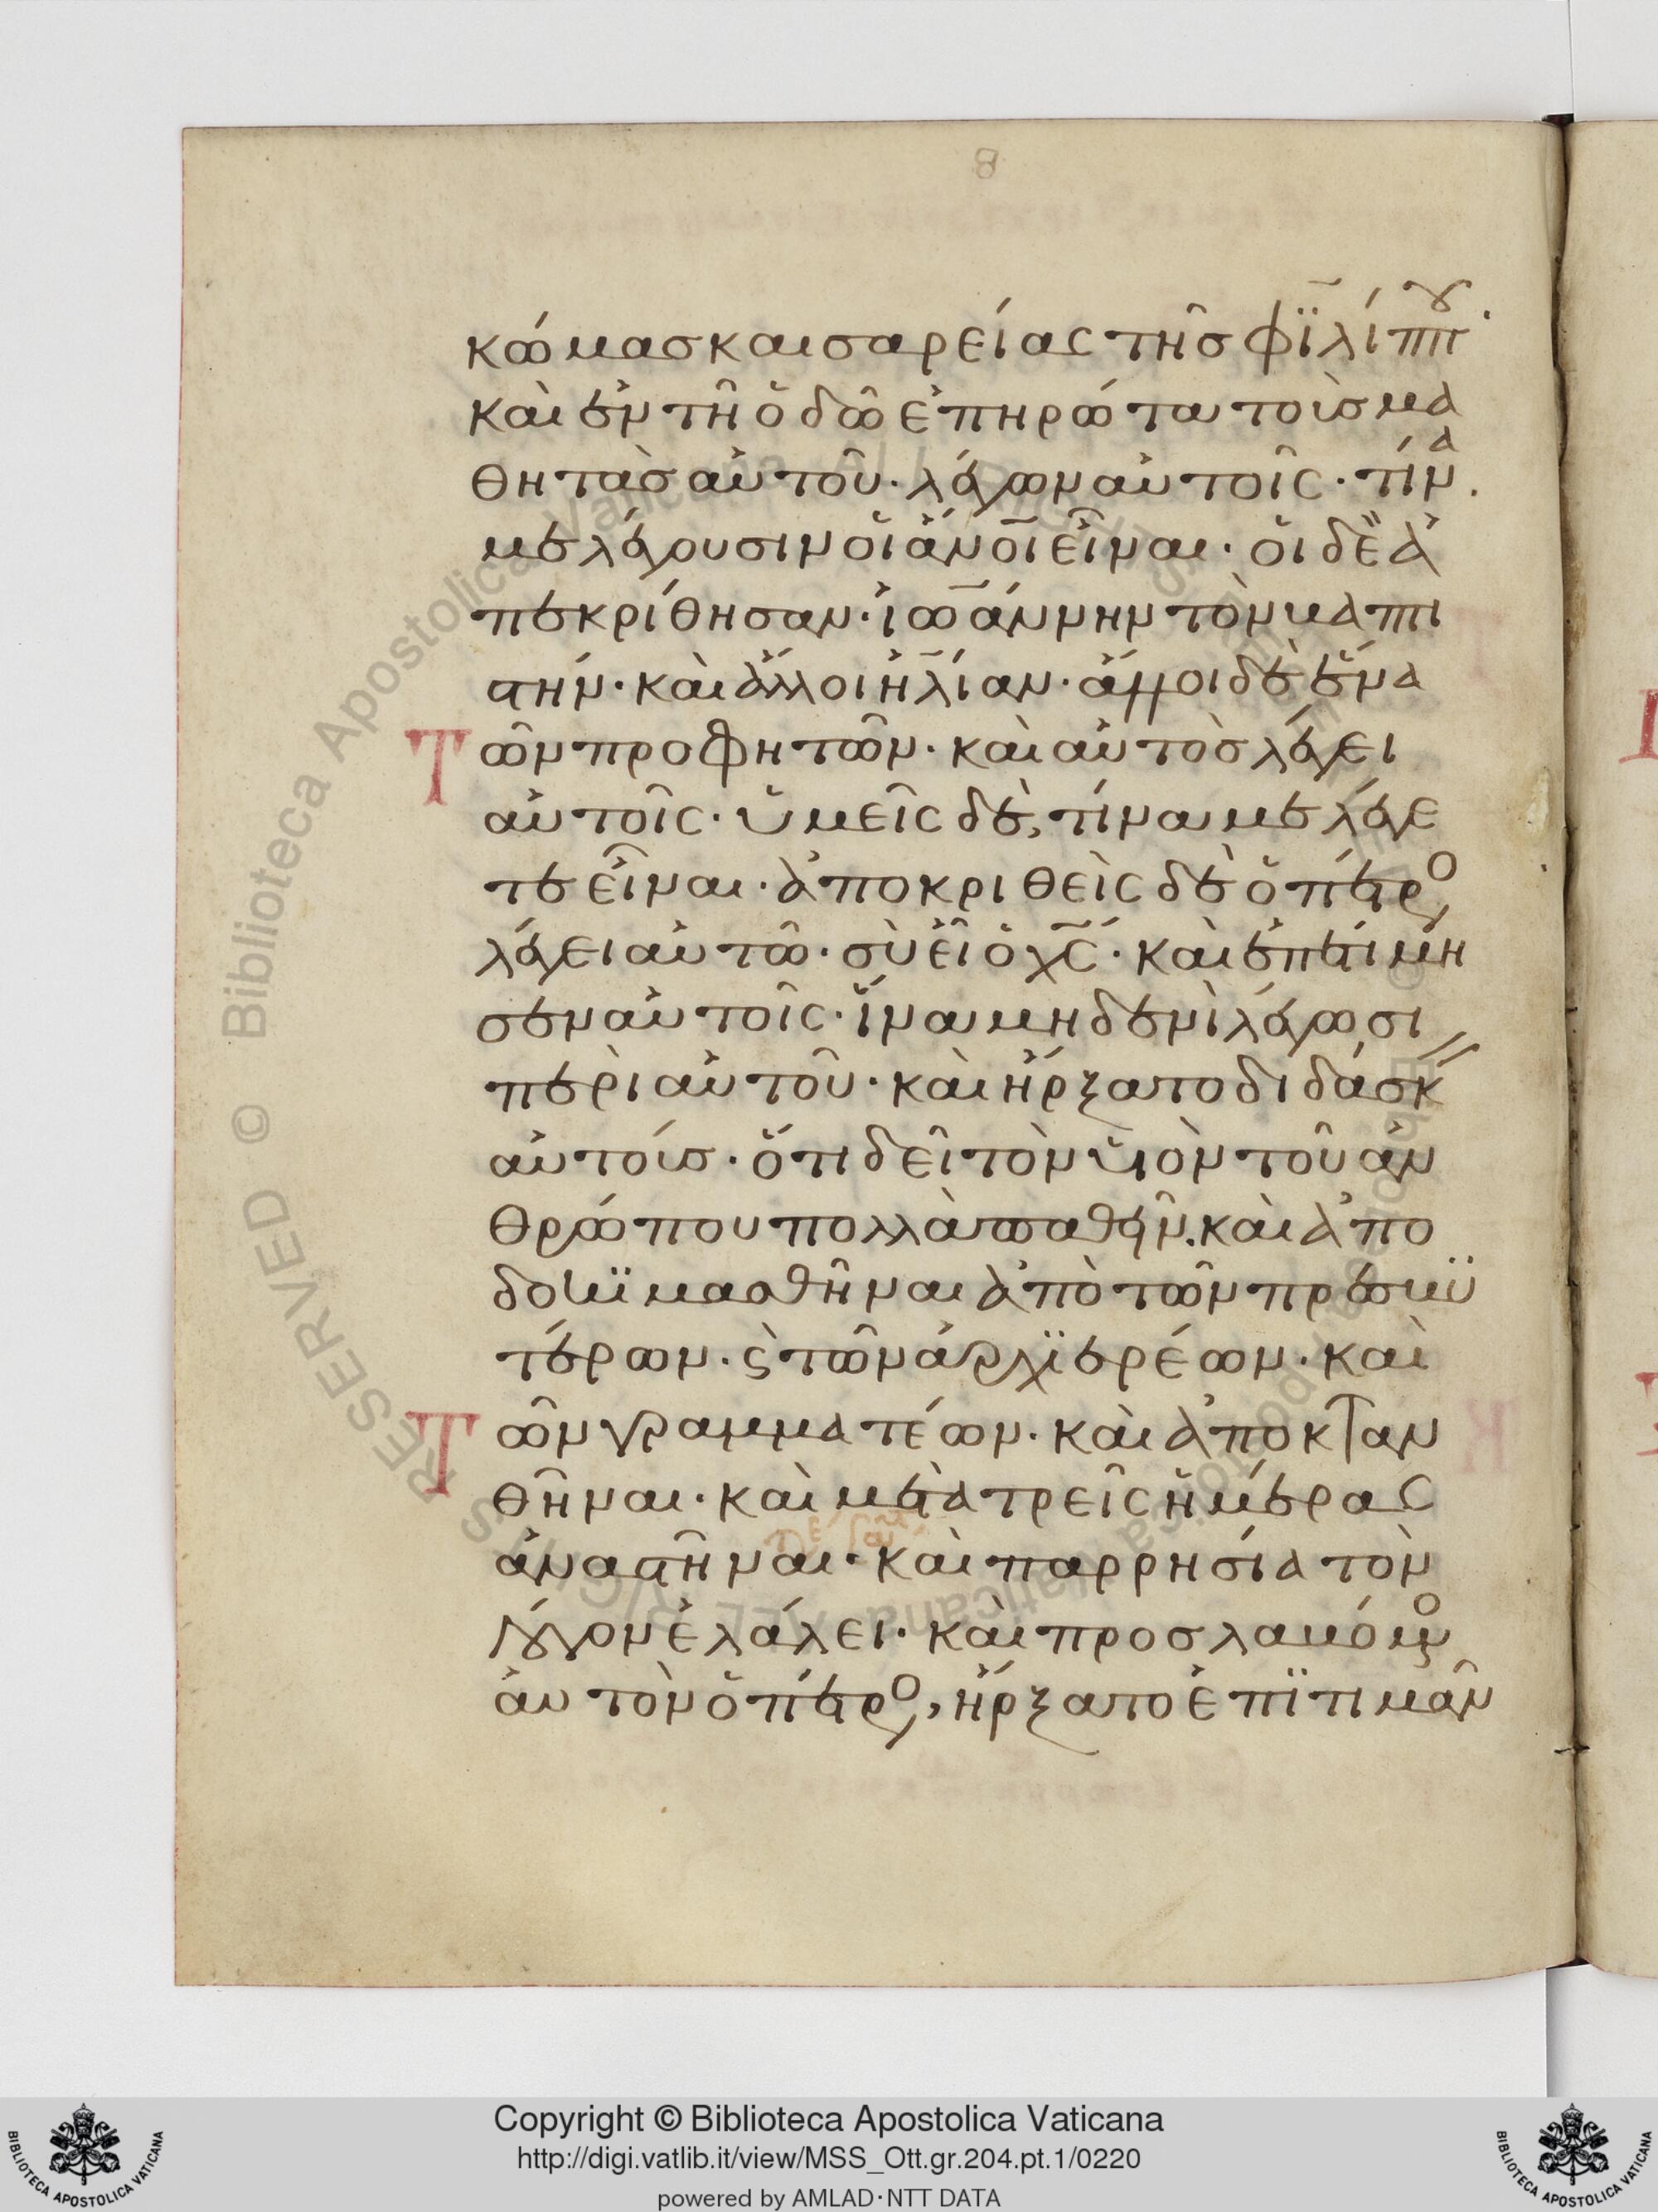 8
κώμασ καισαρείας τῆσ φϊλίππου·
καὶ ἐν τῆ ὁδῶ ἐπηρώτα τοὺσ μα
θητὰσ αὐτοῦ· λέγων αὐτοῖς· τίνα
με λέγουσιν οἱ ἄνοι εἶναι· οἱ δὲ ἀ
πεκρίθησαν· ἰωάννην τὸν βαπτι
στήν· καὶ ἄλλοι ἠλίαν· ἄλλοι δὲ ἕνα
Τῶν προφητῶν· καὶ αὐτὸσ λέγει
αὐτοῖς· ὑμεῖς δὲ, τίνα με λέγε
τε εἶναι· ἀποκριθεὶς δὲ ὁ πέτρος
λέγει αὐτῶ· σὺ εἶ ὁ χς· καὶ ἐπετίμη
σεν αὐτοῖς· ἵνα μηδενὶ λέγωσι
περὶ αὐτοῦ· καὶ ἤρξατο διδάσκειν
αὐτούσ· ὅτι δεῖ τὸν υἱὸν τοῦ ἀν
θρώπου πολλὰ παθεῖν. καὶ ἀπο
δοκϊμασθῆναι ἀπὸ τῶν πρεσβϋ
τέρων· ϛ τῶν ἀρχϊερέων· καὶ
Τῶν γραμματέων· καὶ ἀποκταν
θῆναι· καὶ μετὰ τρεῖς ἡμέρας
ἀναστῆναι· καὶ παρρησία τὸν
λόγον ἐλάλει· καὶ προσλαβόμενος
αὐτὸν ὁ πέτρος, ἤρξατο ἐπϊτιμᾶν
Copyright © Biblioteca Apostolica Vaticana
http://digi.vatlib.it/view/MSS_Ott.gr.204.pt.1/0220
powered by AMLAD·NTT DATA